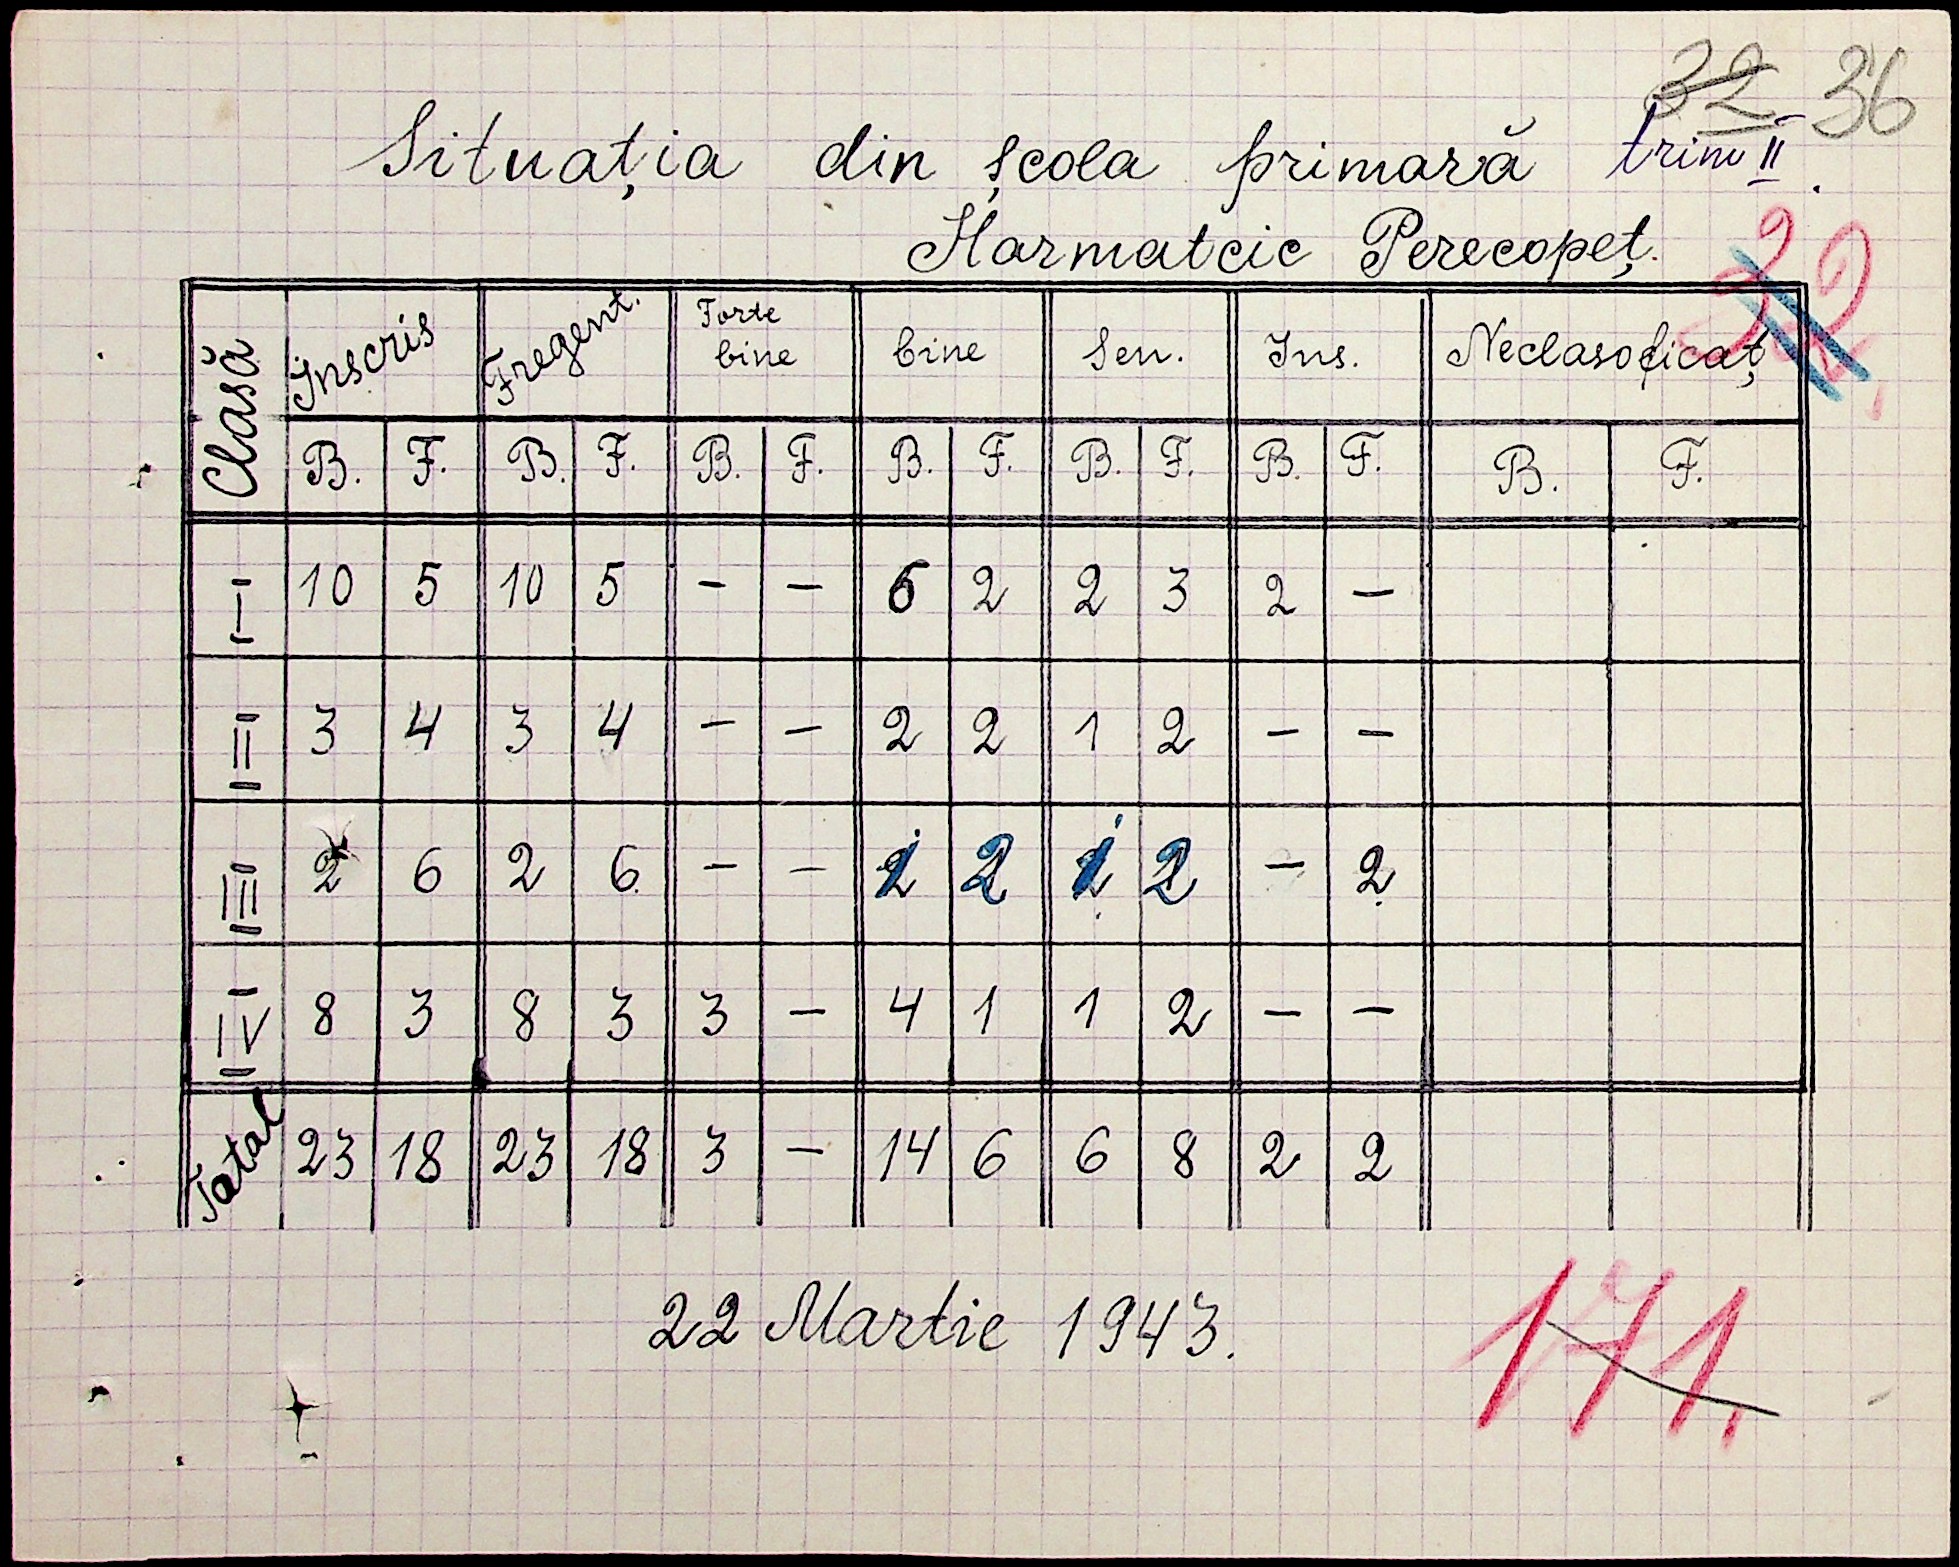 32 36
Situația din școla primară trim II.
Harmatcic Perecopeț.
32
Clasă Inscris Fregent. Forte bine bine Sen. Ins. Neclasoficaț
B. F. B. F. B. F. B. F. B. F. B. F. B. F.
I 10 5 10 5 - - 6 2 2 3 2 -
II 3 4 3 4 - - 2 2 1 2 - -
III 2 6 2 6 - - 1 2 1 2 - 2
IV 8 3 8 3 3 - 4 1 1 2 - -
Tatal 23 18 23 18 3 - 14 6 6 8 2 2
22 Martie 1943.
171.